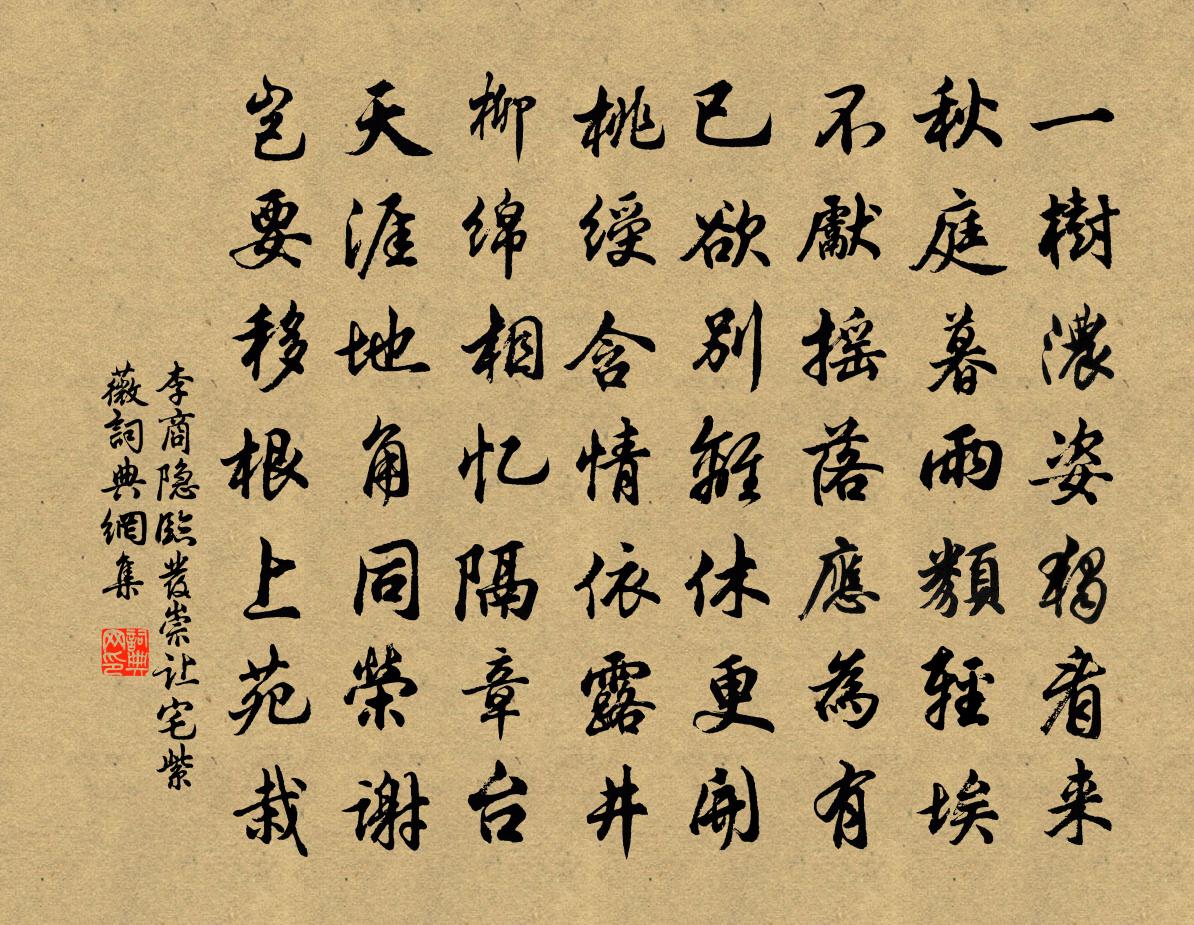 一樹濃姿獨看来
秋庭暮雨類輕埃
不獻摇落應為有
已欲别離休更開
桃綬含情依露井
柳绵相忆隔章台
天涯地角同榮謝
岂要移根上苑栽
李商隐臨發崇让宅紫
薇詞典網集
詞典网印